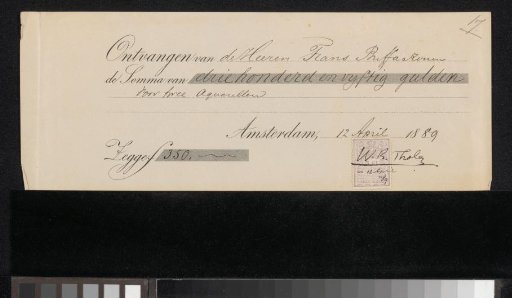 17
Ontvangen van de Heeren Frans Buffa &
de Somma van driehonderd en vyftig gulden
voor twee Aquarellen
Amsterdam, 12 April 1889
Zegge f 350.
W.B. Tholen
12 April